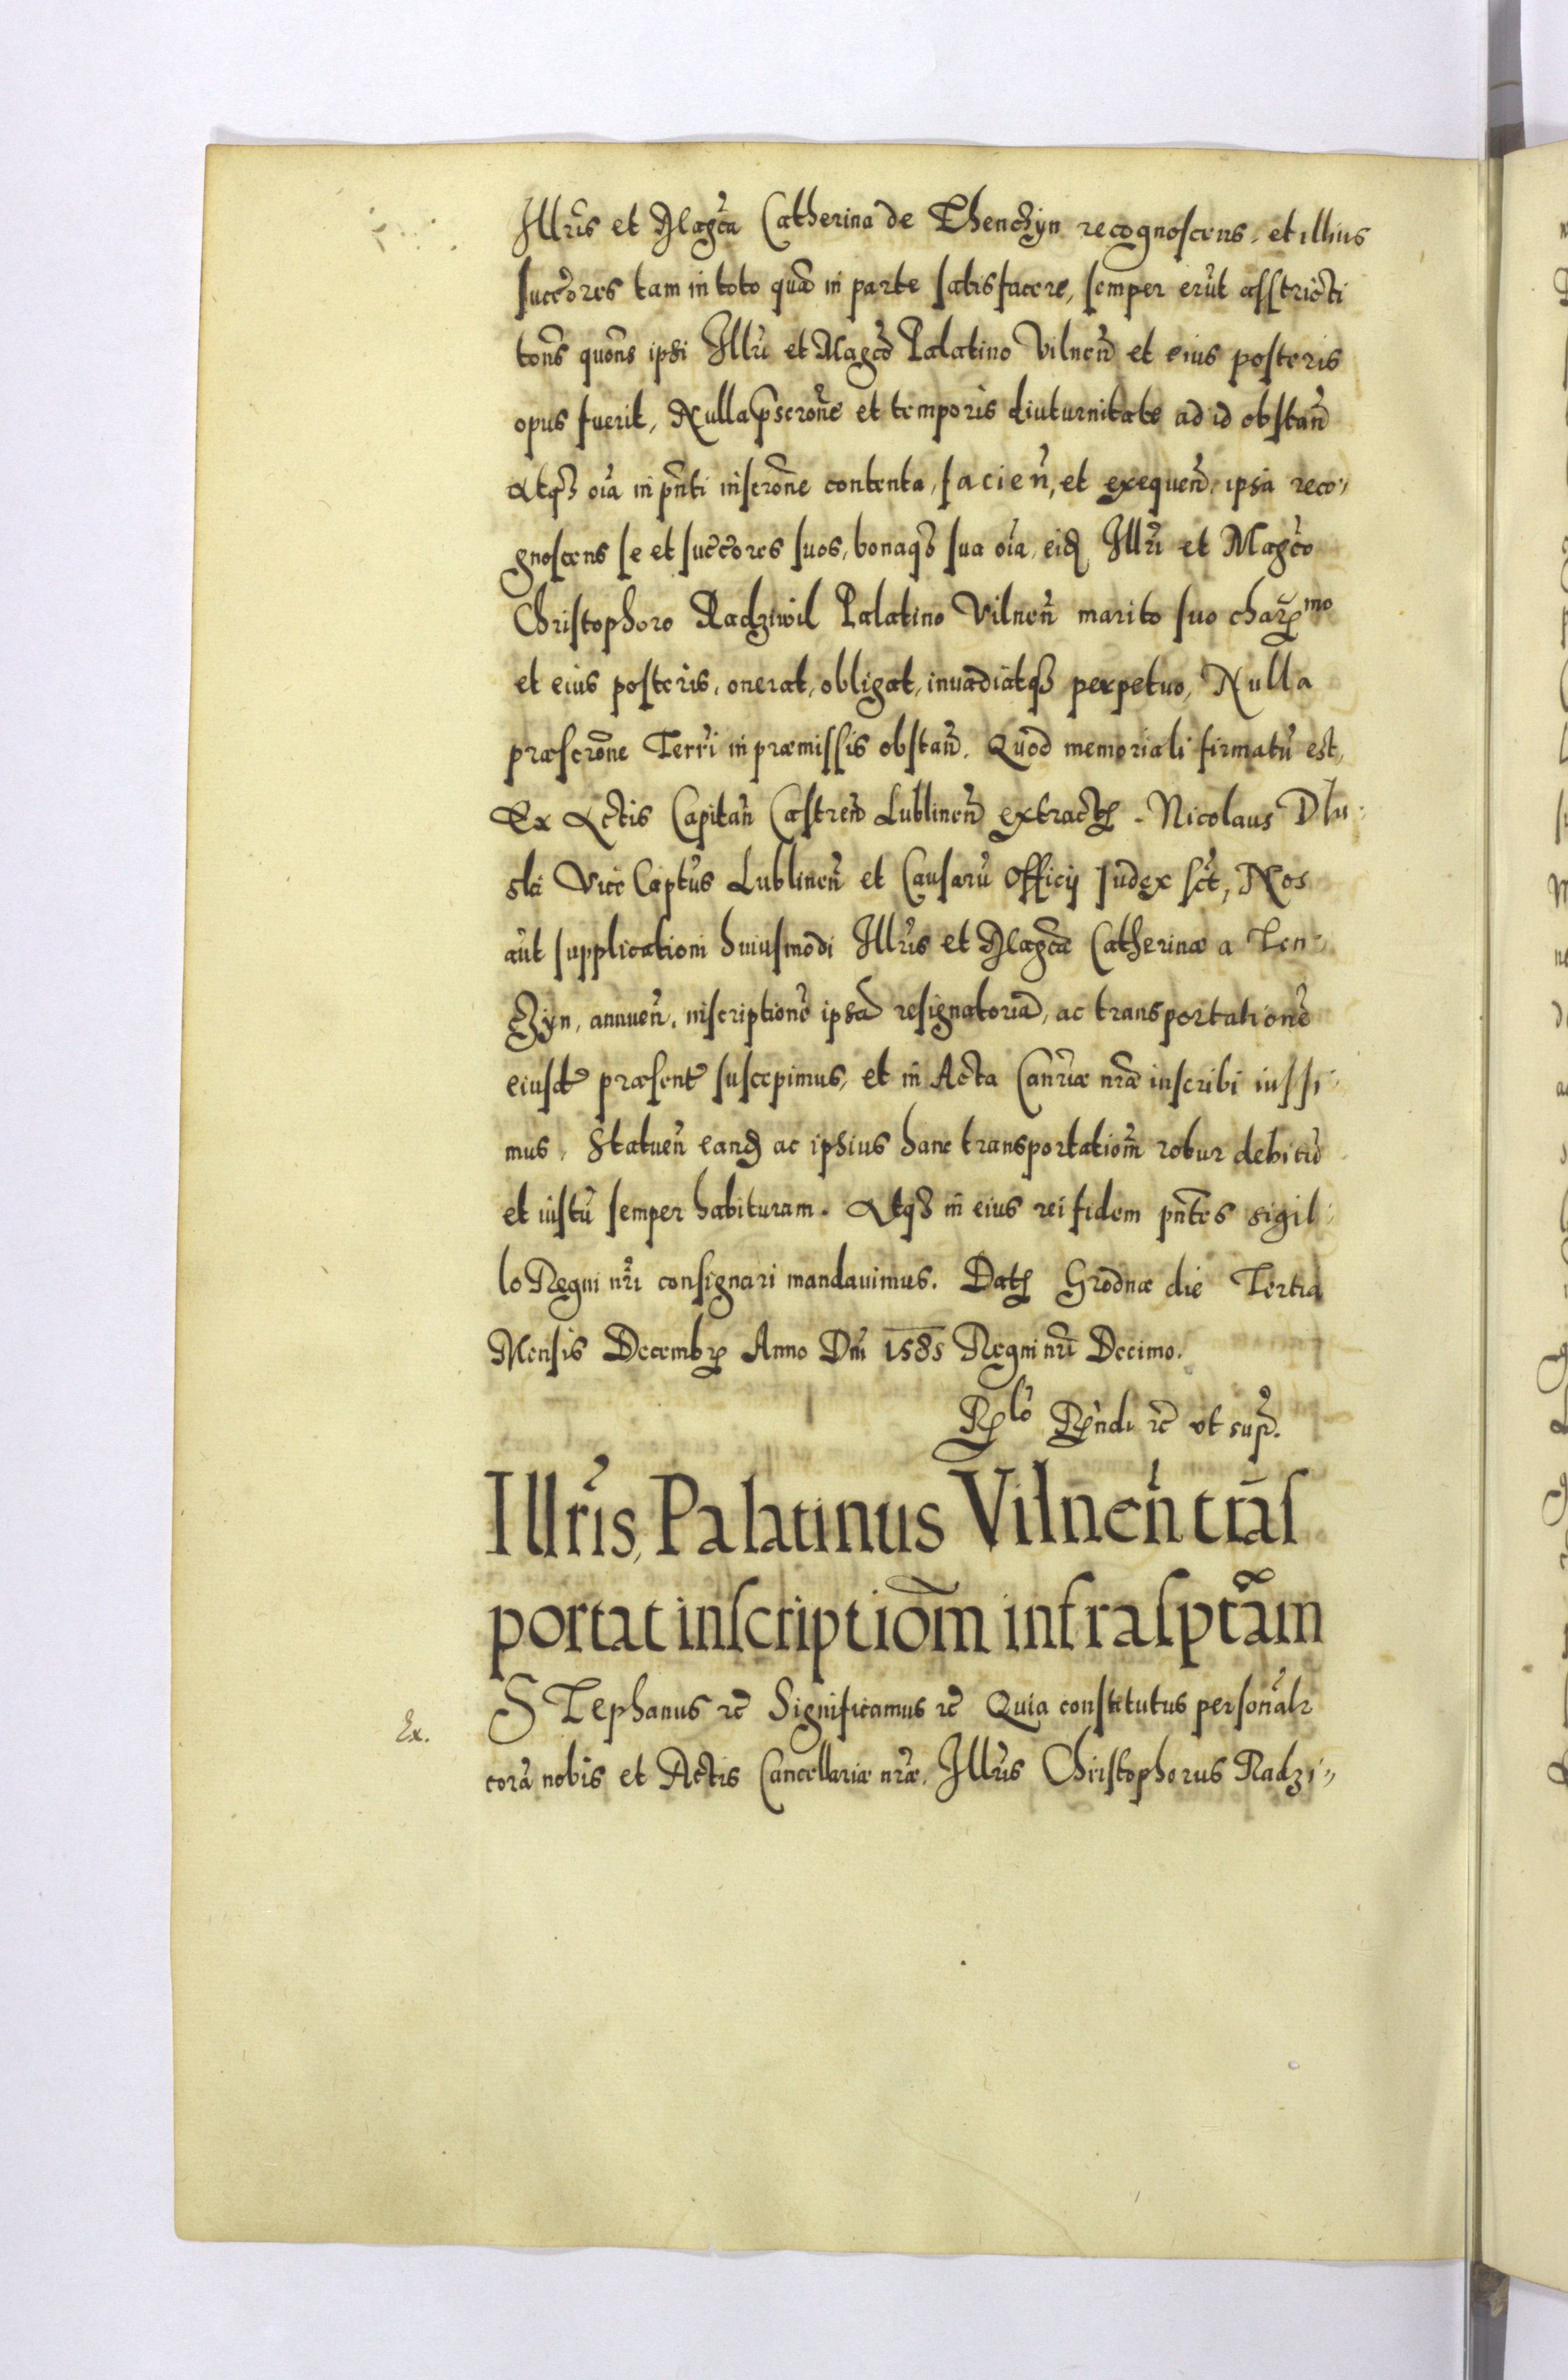 Illris et Magca Catherina de Thenczyn recognoscens, et illius
succores tam in toto quā in parte satisfacere, semper erūt asstricti
tons quons ipsi Illri et Magco Palatino Vilnen et eius posteris
opus fuerit, Nulla pscrone et temporis diuturnitate ad id obstan
Atqȝ oia in pnti inscrone contenta, facien, et exequen, ipsa reco„
gnoscens se et succores suos, bonaqȝ sua oia, eid Illri et Magco
Christophoro Radziwil Palatino Vilnen marito suo charmo
et eius posteris, onerat, obligat, inuadiatqȝ perpetuo, Nulla
præscrone Terri in præmissis obstan. Quod memoriali firmatū est,
Ex Actis Capitan Castren Lublinen extract. Nicolaus Dlu
ski Vice Captus Lublinen et Causarū Officij Iudex sct, Nos
aut supplicationi huiusmodi Illris et Magcæ Catherinæ a Ten
czyn, annuen, inscriptionē ipsā resignatoriā, ac transportationē
eiusd præsent suscepimus, et in Acta Canriæ nræ inscribi iussi
mus, Statuen eand ac ipsius hanc transportationm robur debitū
et iustū semper habituram. Atqȝ in eius rei fidem pntes sigil
lo Regni nri consignari mandauimus. Dat Grodnæ die Tertia
Mensis Decembr Anno Dni 1585 Regni nri Decimo.
Rlo Rndi rc vt supr.
Illris, Palatinus Vilnen trās
portat inscriptiōm infrasptam
STephanus rc Significamus rc Quia constitutus personalr
Ex.
corā nobis et Actis Cancellariæ nræ, Illris Christophorus Radzi„